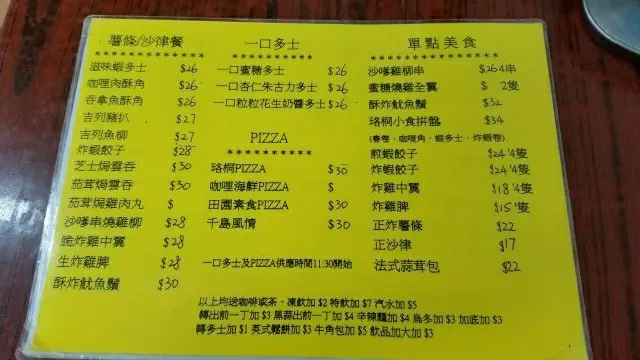 薯條/沙律餐
滋味蝦多士 $26
咖哩肉酥角 $26
吞拿魚酥角 $26
吉列豬扒 $27
吉列魚柳 $27
炸蝦餃子 $28
芝士焗雲吞 $30
茄茸焗雲吞 $30
茄茸焗雞肉丸 $
沙嗲串燒雞柳 $28
脆炸雞中翼 $28
生炸雞脾 $28
酥炸魷魚鬚 $30
一口多士
一口蜜糖多士 $26
一口杏仁朱古力多士 $26
一口粒粒花生奶醬多士 $26
PIZZA
珞桐PIZZA $30
咖哩海鮮PIZZA $
田園素食PIZZA $30
千島風情 $30
一口多士及PIZZA供應時間11:30開始
單點美食
沙嗲雞柳串 $26 4串
蜜糖燒雞全翼 $ 2隻
酥炸魷魚鬚 $32
珞桐小食拼盤 $34
(春卷、咖哩角、蝦多士、炸蝦卷)
煎蝦餃子 $24 4隻
炸蝦餃子 $24 4隻
炸雞中翼 $18 4隻
炸雞脾 $15 1隻
正炸薯條 $22
正沙律 $17
法式蒜茸包 $22
以上均送咖啡或茶、凍飲加 $2 特飲加 $7 汽水加 $5
轉出前一丁加 $3 黑蒜出前一丁加 $4 辛辣麵加 $4 烏冬加 $3 加底加 $3
轉多士加 $1 英式鬆餅加 $3 牛角包加 $5 飲品加大加 $3